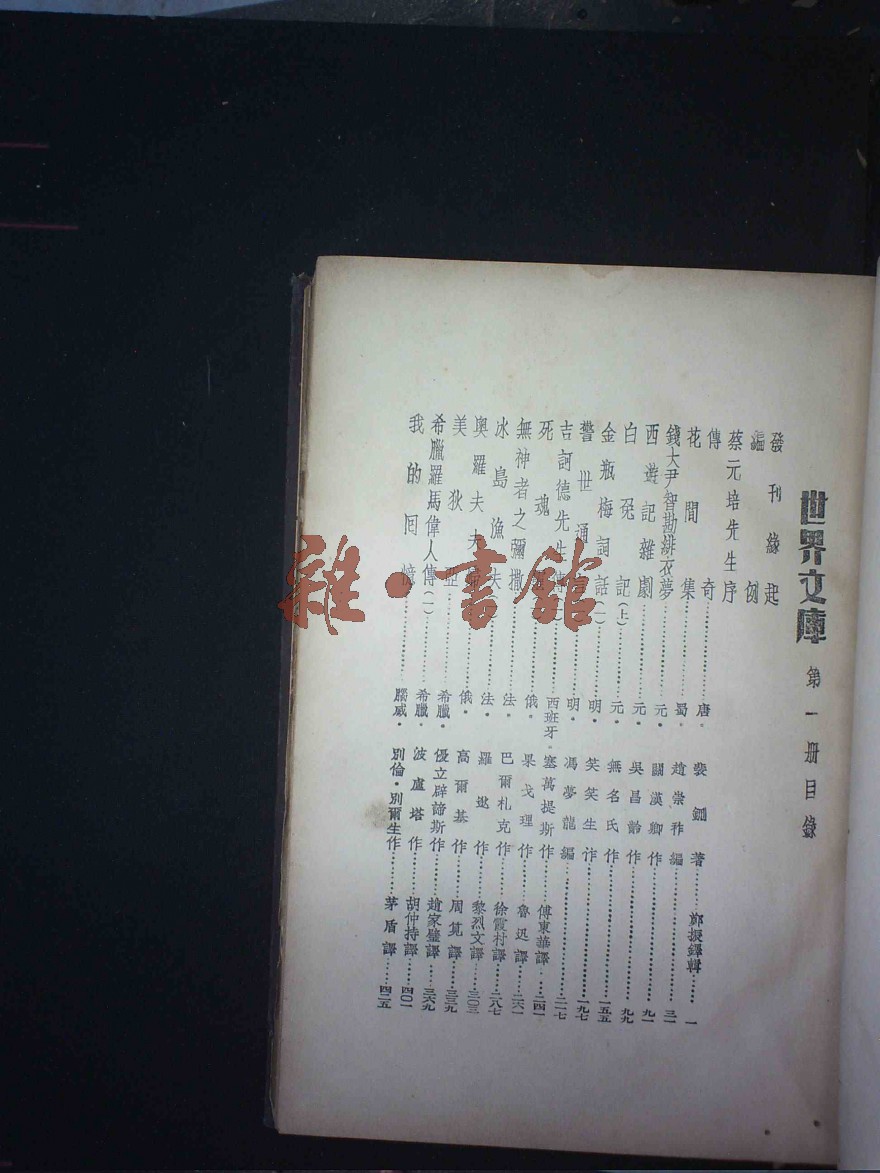 世界文庫 第一册目錄
發刊緣起
編例
蔡元培先生序
傳奇……唐·裴鉶著……鄭振鐸輯……一
花間集……蜀·趙崇祚編……三一
錢大尹智勘緋衣夢……元·關漢卿作……九一
西遊記雜劇……元·吳昌齡作……九九
白兔記(上)……元·無名氏作……一五五
金瓶梅詞話(一)……明·笑笑生作……一九七
警世通言……明·馮夢龍編……二一七
吉訶德先生傳……西班牙·塞萬提斯作……傅東華譯……二四一
死魂……俄·果戈理作……魯迅譯……二六一
無神者之彌撒……法·巴爾札克作……徐霞村譯……二八七
冰島漁夫……法·羅逖作……黎烈文譯……三〇三
奧羅夫夫婦……俄·高爾基作……周筧譯……三三九
美狄亞……希臘·優立辟諦斯作……趙家璧譯……三六九
希臘羅馬偉人傳(一)……希臘·波盧塔作……胡仲持譯……四〇一
我的回憶……腦威·別倫·別爾生作……茅盾譯……四二五
雜·書館